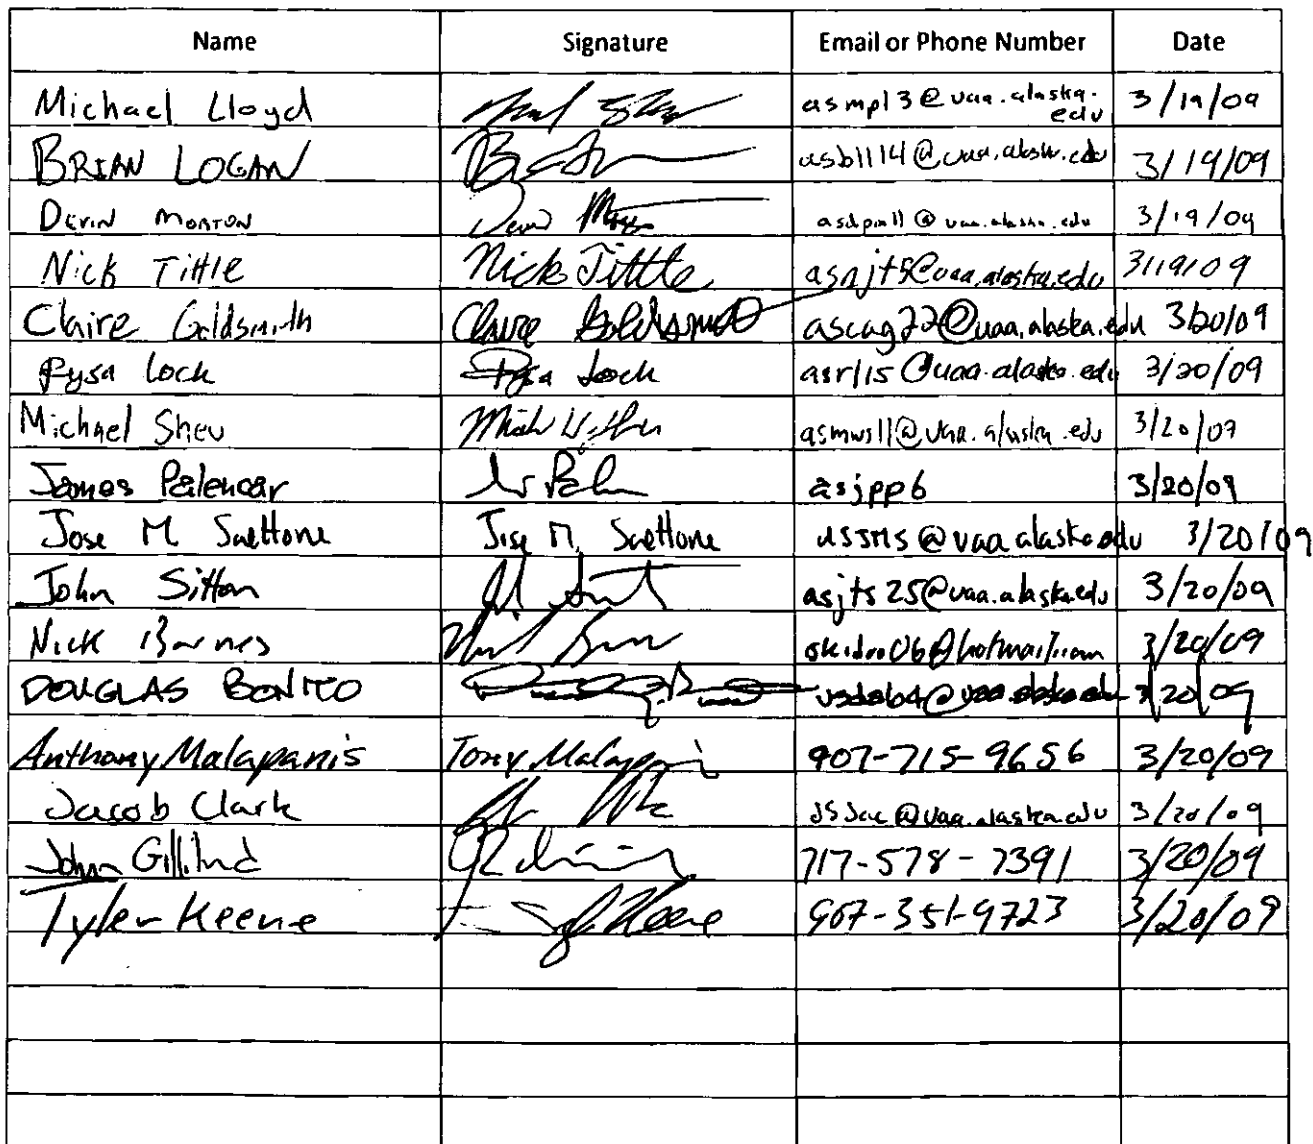 Name Signature Email or Phone Number Date
Michael Lloyd asmpl3@uaa.alaska.edu 3/19/09
BRIAN LOGAN asbll14@uaa.alaska.edu 3/19/09
DEVIN MORTON @uaa.alaska.edu 3/19/09
Nick Tittle Nick Tittle asnjt5@uaa.alaska.edu 3/19/09
Claire Goldsmith Claire Goldsmith ascag22@uaa.alaska.edu 3/20/09
Rysa Lock Rysa Lock asrl15@uaa.alaska.edu 3/20/09
Michael Shew asmws11@uaa.alaska.edu 3/20/09
James Palencar asjpp6 3/20/09
Jose M Saettone Jose M. Saettone @uaa.alaska.edu 3/20/09
John Sitton asjts25@uaa.alaska.edu 3/20/09
Nick Barnes 3/20/09
DOUGLAS BONITO 3/20/09
Anthony Malapanis Tony 907-715-9656 3/20/09
Jacob Clark @uaa.alaska.edu 3/20/09
John Gilliland 717-578-7391 3/20/09
Tyler Keene Keene 907-351-9723 3/20/09